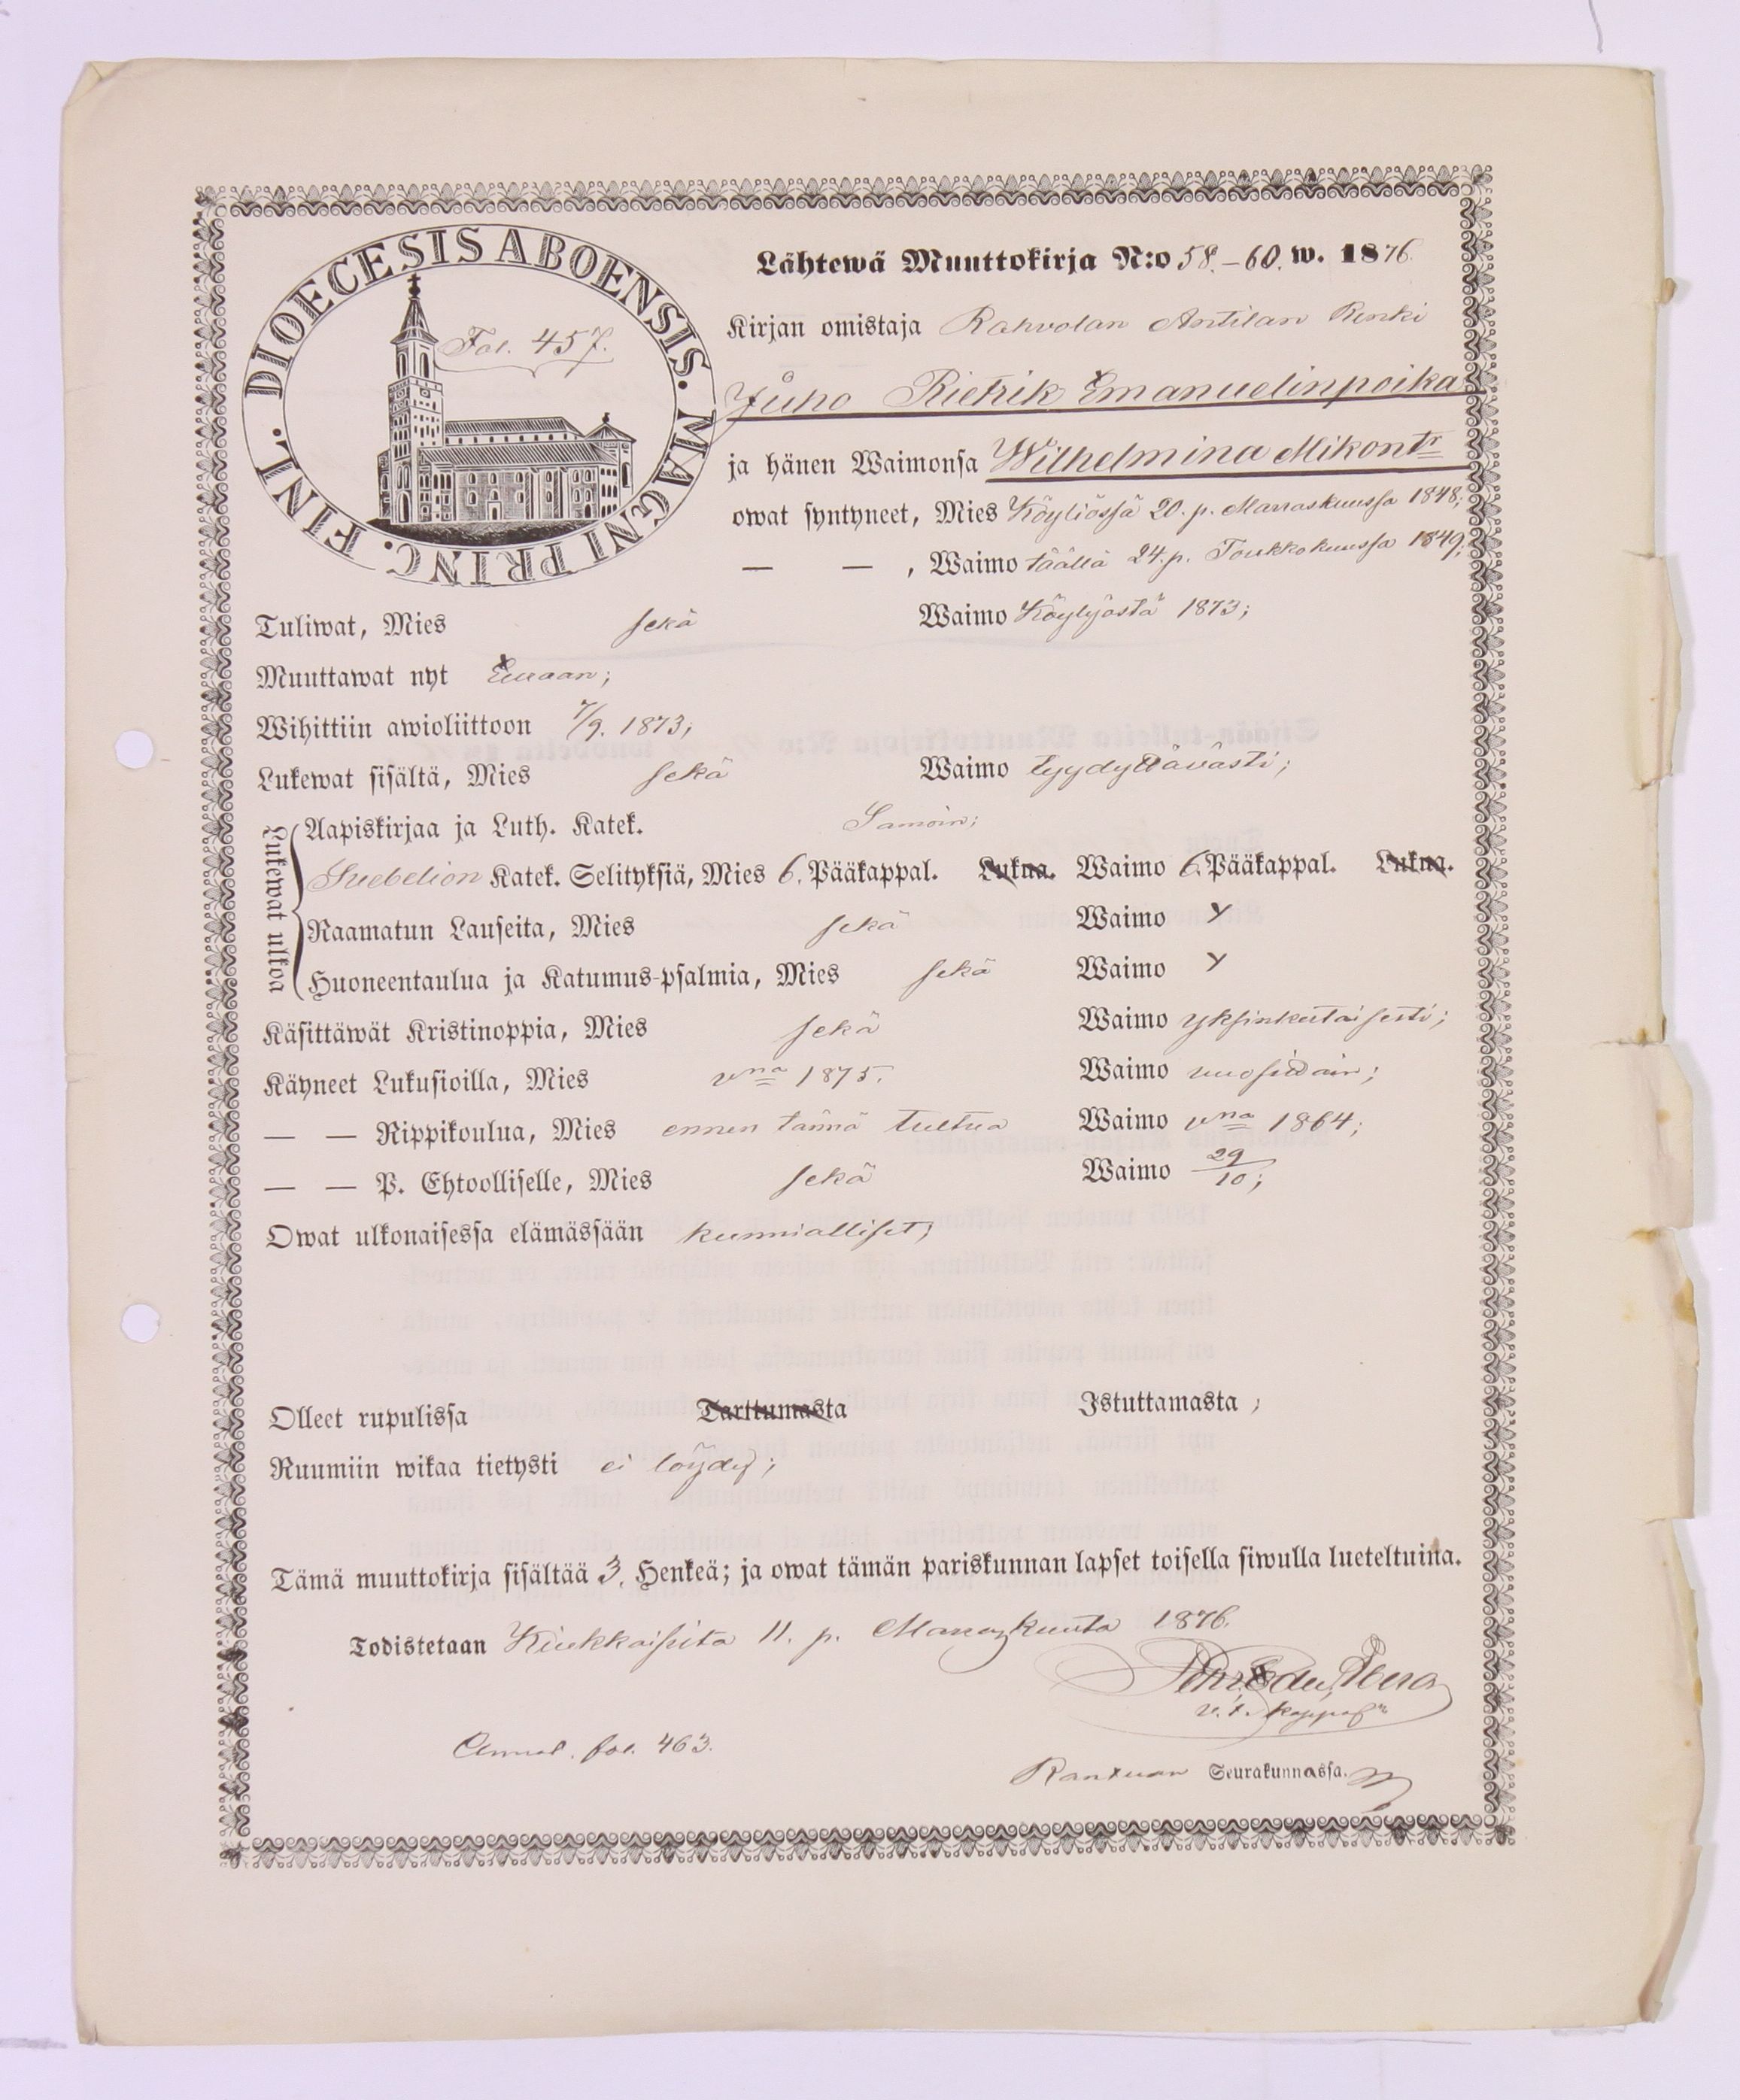 DIOECESIS ABOENSIS. MAGNI PRINC. FINL.
Fol. 457.
Lähtewä Muuttokirja N:o 58.–60. w. 1876.
Kirjan omistaja Rahvolan Antilan Renki
Juho Rietrik Emanuelinpoika
ja hänen Waimonsa Wilhelmina Mikontr
owat syntyneet, Mies Köyliössä 20. p. Marraskuussa 1848;
— — , Waimo täällä 24. p. Toukkokuussa 1849;
Tuliwat, Mies sekä Waimo Köyliöstä 1873;
Muuttawat nyt Euraan;
Wihittiin awioliittoon 7/9. 1873;
Lukewat sisältä, Mies sekä Waimo tyydyttäwästi;
Lukewat ulkoa
Aapiskirjaa ja Luth. Katek. Samoin;
Svebelion Katek. Selityksiä, Mies 6. Pääkappal. Lukna. Waimo 6. Pääkappal. Lukna.
Raamatun Lauseita, Mies sekä Waimo
Huoneentaulua ja Katumus-psalmia, Mies sekä Waimo
Käsittäwät Kristinoppia, Mies sekä Waimo yksinkertaisesti;
Käyneet Lukusioilla, Mies vna 1875. Waimo vuosittain;
— — Rippikoulua, Mies ennen tännä tultua Waimo vna 1864;
— — P. Ehtoolliselle, Mies sekä Waimo 29/10;
Owat ulkonaisessa elämässään kunnialliset;
Olleet rupulissa Tarttumasta Istuttamasta;
Ruumiin wikaa tietysti ei löydy;
Tämä muuttokirja sisältää 3. Henkeä; ja owat tämän pariskunnan lapset toisella siwulla lueteltuina.
Todistetaan Kiukkaisista 11. p. Marrazkuuta 1876.
v. t. kappal
Annot. fol. 463.
Seurakunnassa.